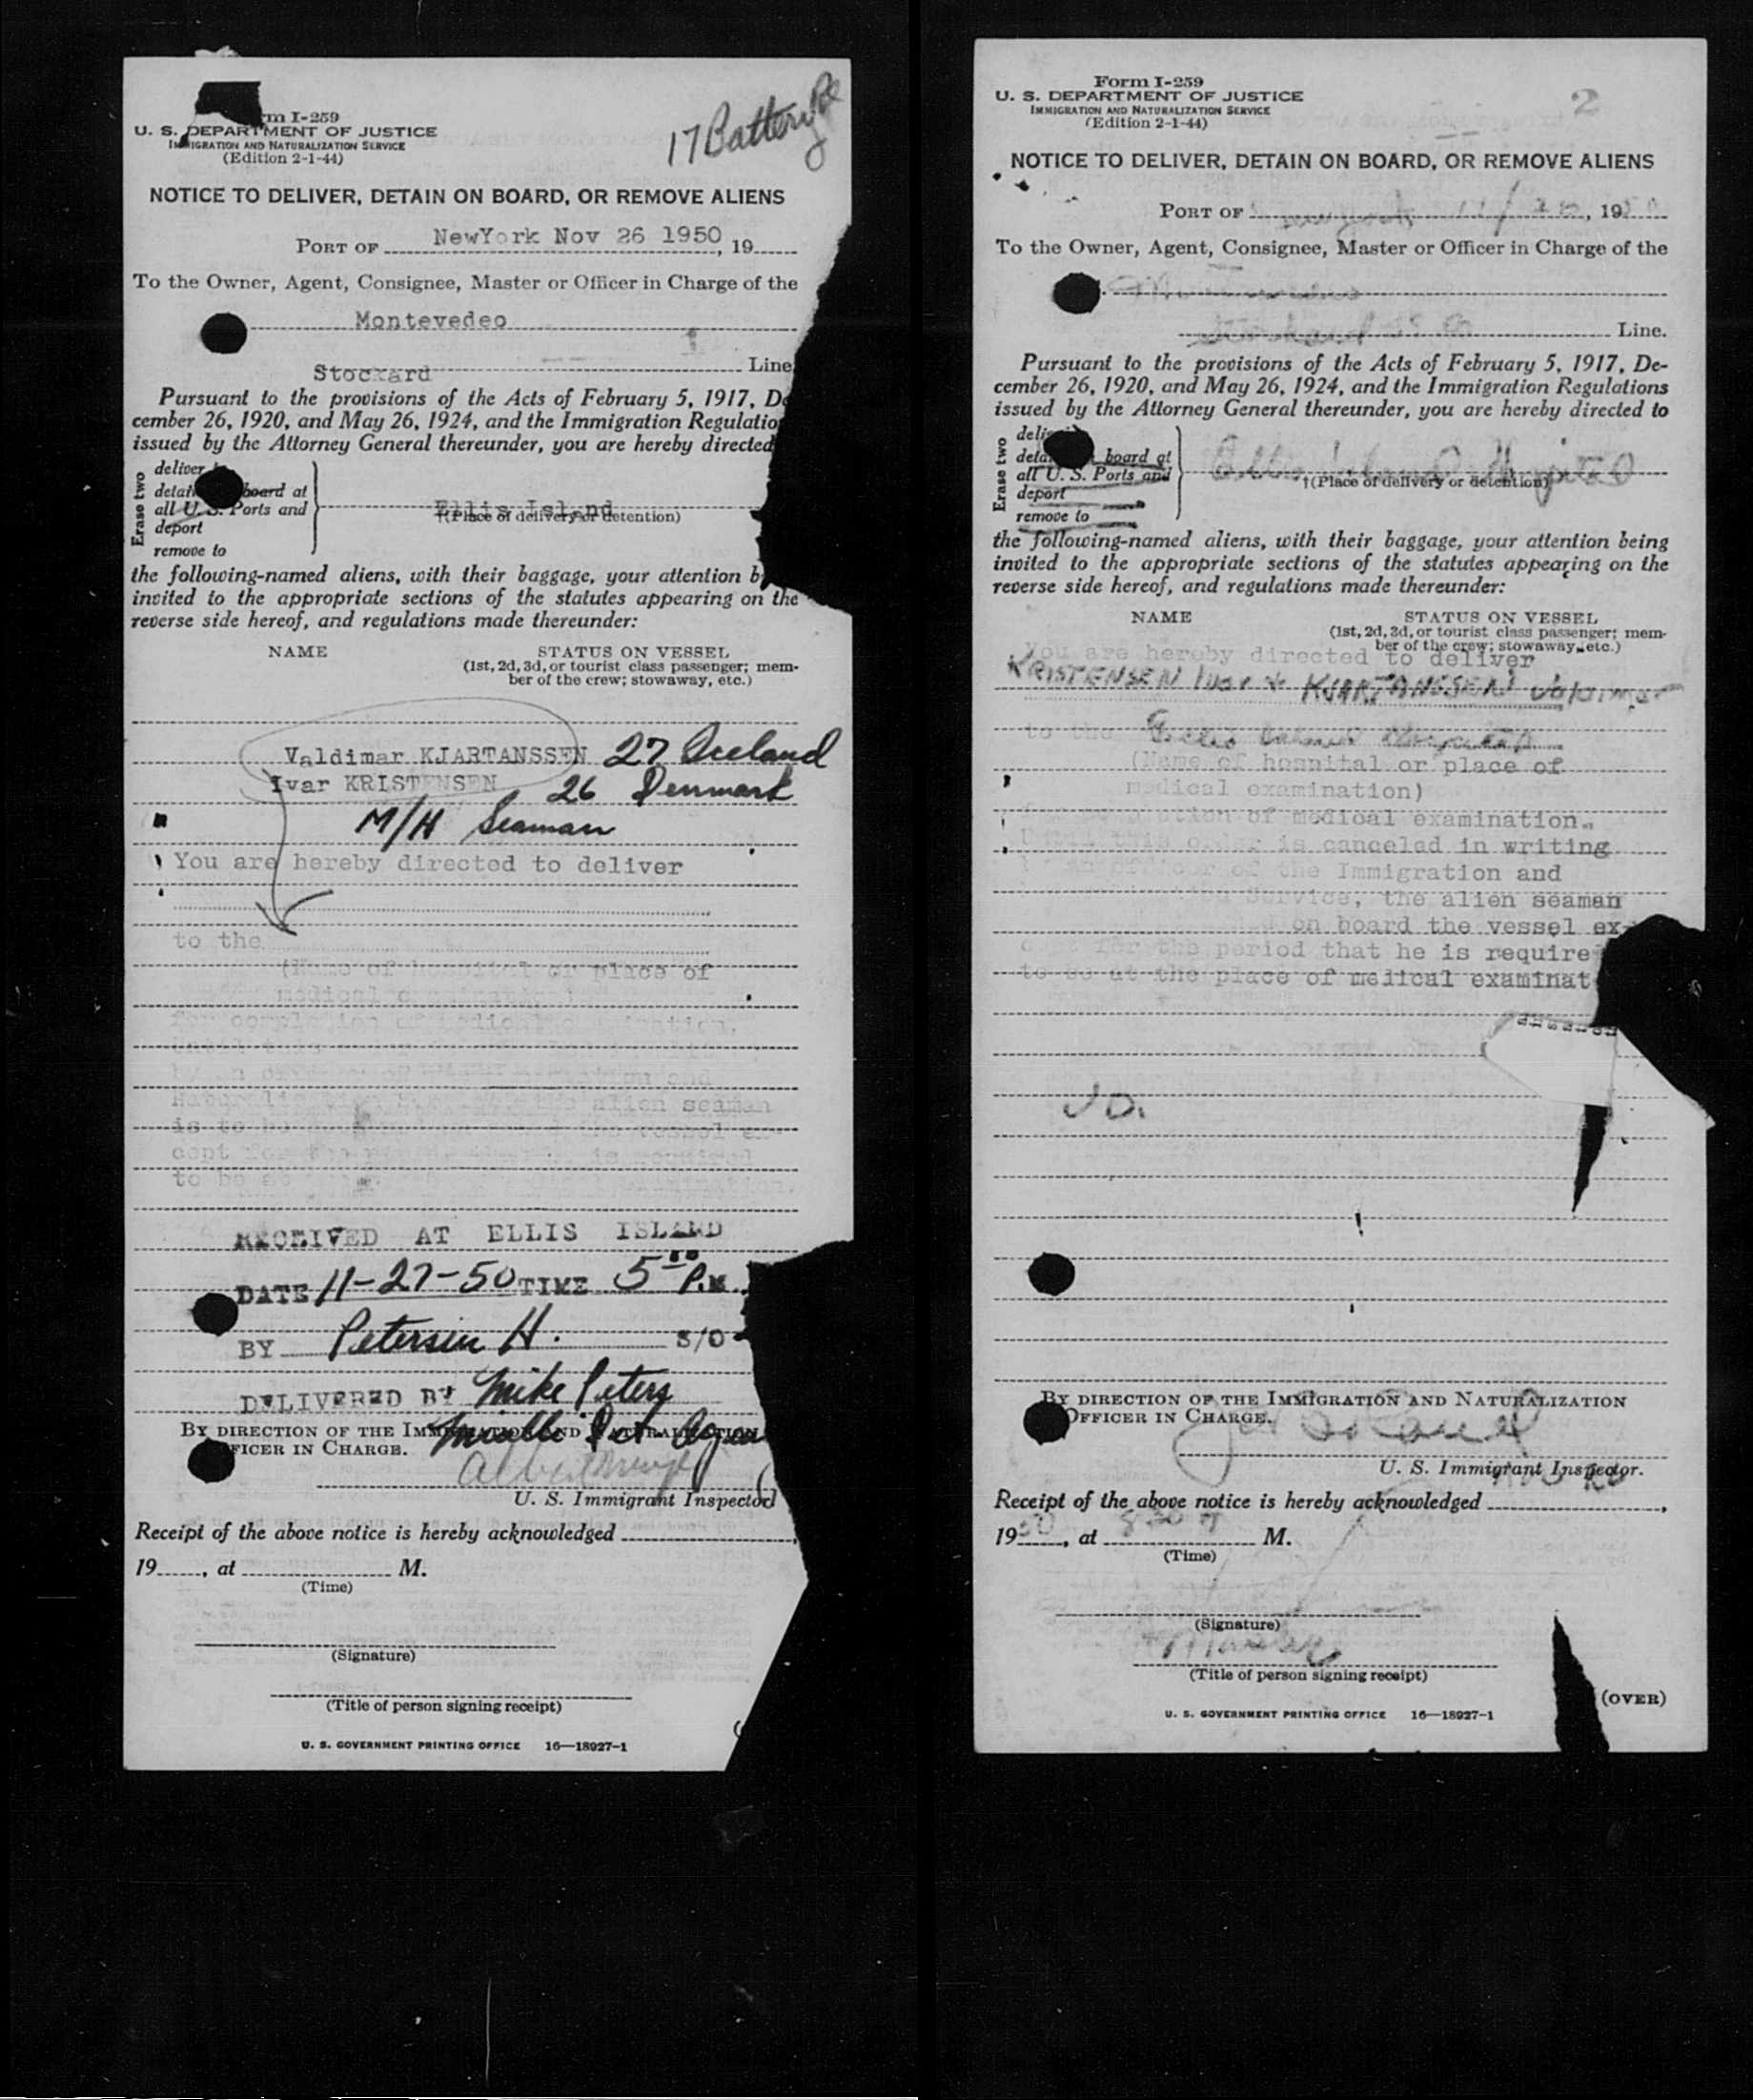 17 Battery Pl
rm I-259
U. S. DEPARTMENT OF JUSTICE
IMMIGRATION AND NATURALIZATION SERVICE
(Edition 2-1-44)
NOTICE TO DELIVER, DETAIN ON BOARD, OR REMOVE ALIENS
PORT OF NewYork Nov 26 1950, 19
To the Owner, Agent, Consignee, Master or Officer in Charge of the
Montevedeo
Stockard Line
Pursuant to the provisions of the Acts of February 5, 1917, De
cember 26, 1920, and May 26, 1924, and the Immigration Regulatio
issued by the Attorney General thereunder, you are hereby directed
Erase two
deliver
detain board at
all U. S. Ports and
deport
remove to
Ellis Island
†(Place of delivery or detention)
the following-named aliens, with their baggage, your attention b
invited to the appropriate sections of the statutes appearing on the
reverse side hereof, and regulations made thereunder:
NAME STATUS ON VESSEL
(1st, 2d, 3d, or tourist class passenger; mem-
ber of the crew; stowaway, etc.)
Valdimar KJARTANSSEN 27 Iceland
Ivar KRISTENSEN 26 Denmark
M/H Seaman
You are hereby directed to deliver
to the
(Name of hospital or place of
medical examination)
for completion of medical examination.
alien seaman
is to be
vessel ex-
cept for the is required
to be at
RECEIVED AT ELLIS ISLAND
DATE 11-27-50 TIME 5 P.M.
BY Petersen H. S/O
DELIVERED BY Mike Peters
BY DIRECTION OF THE IMMIGRATION AND NATURALIZATION
OFFICER IN CHARGE.
U. S. Immigrant Inspector
Receipt of the above notice is hereby acknowledged
19, at M.
(Time)
(Signature)
(Title of person signing receipt)
U. S. GOVERNMENT PRINTING OFFICE 16—18927-1
Form I-259
U. S. DEPARTMENT OF JUSTICE
IMMIGRATION AND NATURALIZATION SERVICE
(Edition 2-1-44)
2
NOTICE TO DELIVER, DETAIN ON BOARD, OR REMOVE ALIENS
PORT OF, 1950
To the Owner, Agent, Consignee, Master or Officer in Charge of the
Line.
Pursuant to the provisions of the Acts of February 5, 1917, De-
cember 26, 1920, and May 26, 1924, and the Immigration Regulations
issued by the Attorney General thereunder, you are hereby directed to
Erase two
deliv
detai board at
all U. S. Ports and
deport
remove to
Ellis Island Hospital
†(Place of delivery or detention)
the following-named aliens, with their baggage, your attention being
invited to the appropriate sections of the statutes appearing on the
reverse side hereof, and regulations made thereunder:
NAME STATUS ON VESSEL
(1st, 2d, 3d, or tourist class passenger; mem-
ber of the crew; stowaway, etc.)
You are hereby directed to deliver
KRISTENSEN Ivar + KJARTANSSEN Valdimar
to the Ellis Island Hospital
(Name of hospital or place of
medical examination)
of medical examination.
Until this order is canceled in writing
of the Immigration and
Service, the alien seaman
on board the vessel ex-
cept for the period that he is require
to be at the place of medical examinat
JD.
BY DIRECTION OF THE IMMIGRATION AND NATURALIZATION
OFFICER IN CHARGE.
U. S. Immigrant Inspector.
Receipt of the above notice is hereby acknowledged,
1950, at 830 M.
(Time)
(Signature)
(Title of person signing receipt)
(OVER)
U. S. GOVERNMENT PRINTING OFFICE 16—18927-1